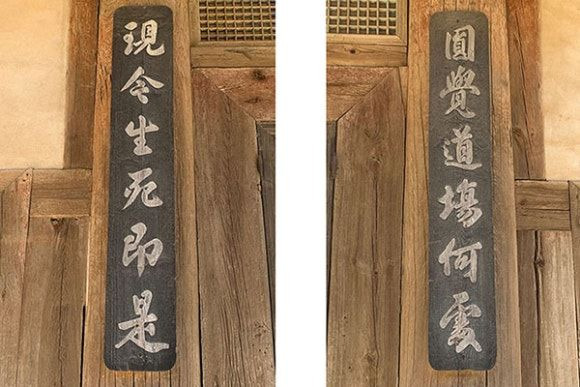 圓覺道場何處
現今生死即是